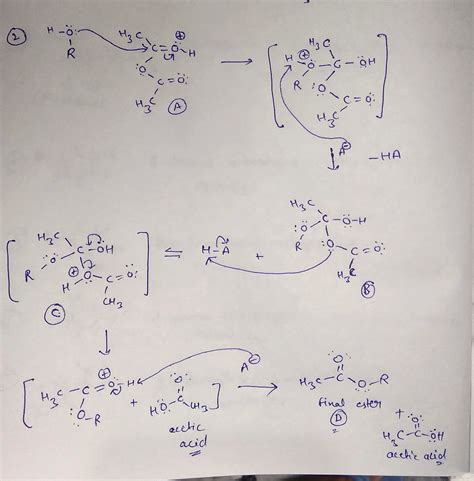 ②
H-Ö: R H₃C C=Ö-H ⊕ :O: C=Ö: H₃C Ⓐ
H ⊕ Ö R H₃C C-ÖH :O: C=Ö: H₃C
A⊖
-HA
H₃C C-Ö-H :Ö R :O: C=Ö: H₃C Ⓑ
H-A +
H₃C C-ÖH R Ö: H-O ⊕ C=Ö: CH₃ Ⓒ
A⊖
H₃C C=Ö-H ⊕ :O-R + HÖ C CH₃ :O:
acetic
acid
H₃C C Ö-R :O:
final ester
Ⓓ
+
H₃C C ÖH :O:
acetic acid